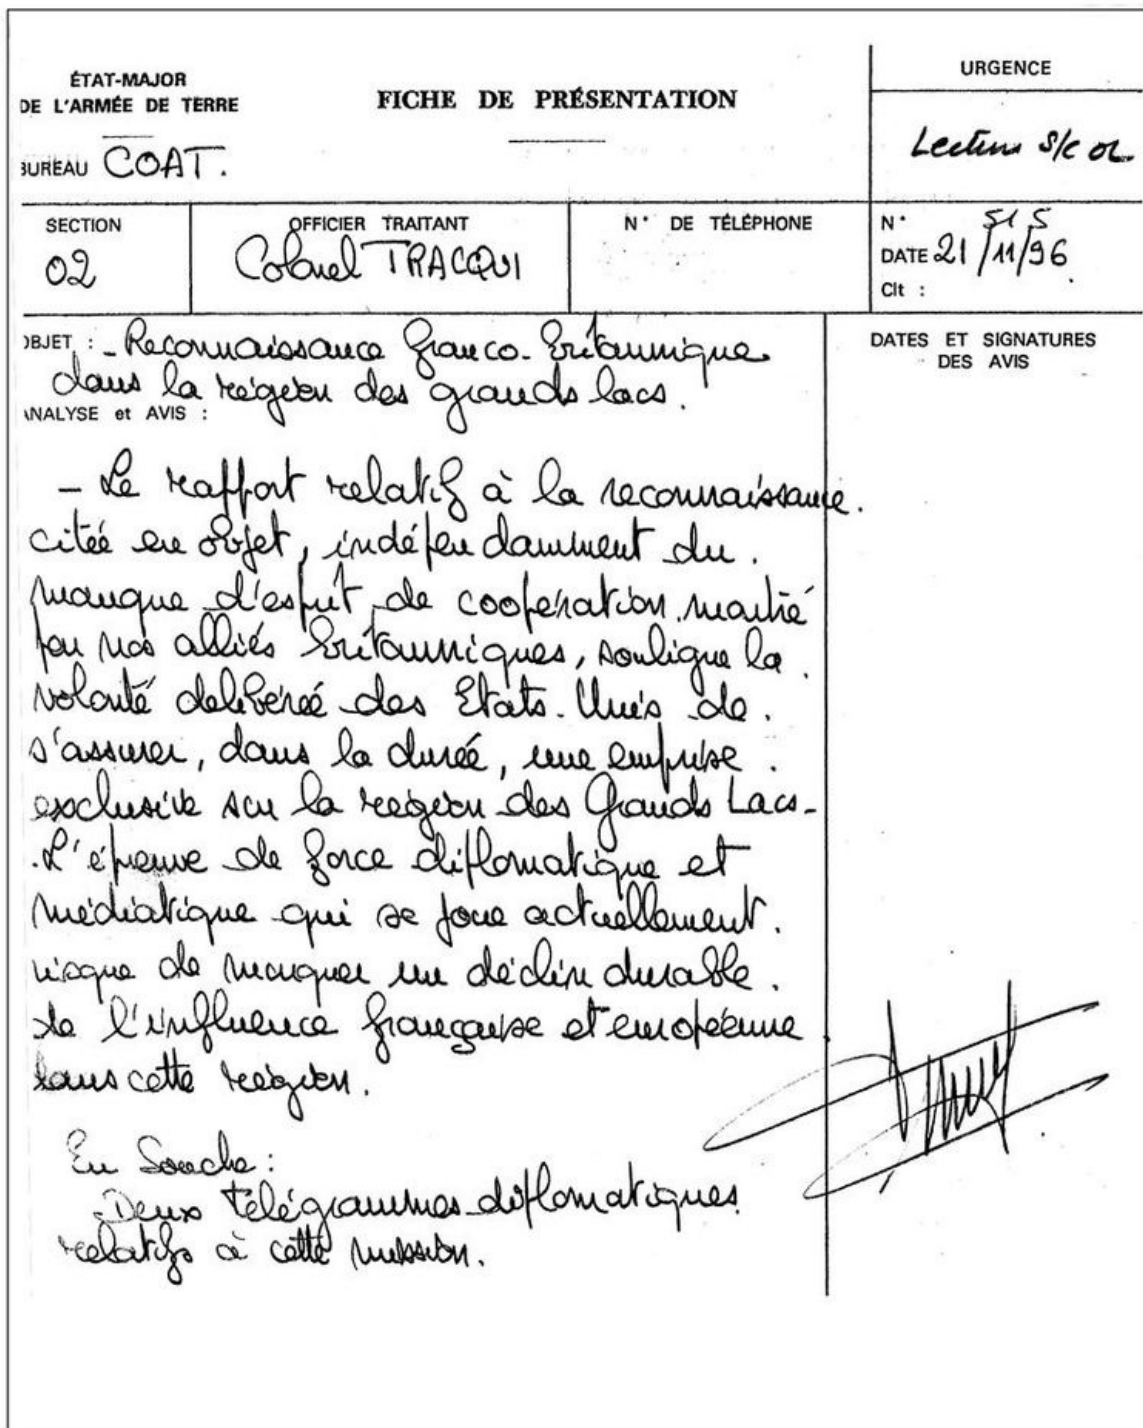 ÉTAT-MAJOR
DE L'ARMÉE DE TERRE
BUREAU COAT.
FICHE DE PRÉSENTATION
URGENCE
Lecture S/C
SECTION
02
OFFICIER TRAITANT
Colonel TRACQUI
N° DE TÉLÉPHONE
N° 515
DATE 21/11/96
Clt :
OBJET : - Reconnaissance franco-britannique
dans la région des grands lacs.
ANALYSE et AVIS :
DATES ET SIGNATURES
DES AVIS
- Le rapport relatif à la reconnaissance.
citée en objet, indépendamment du.
manque d'esprit de coopération montré
par nos alliés britanniques, souligne la.
volonté délibérée des Etats-Unis de.
s'assurer, dans la durée, une emprise.
exclusive sur la région des Grands Lacs-
.L'épreuve de force diplomatique et
médiatique qui se joue actuellement.
risque de marquer un déclin durable.
de l'influence française et européenne
dans cette région.
En Souche :
Deux télégrammes diplomatiques
relatifs à cette mission.